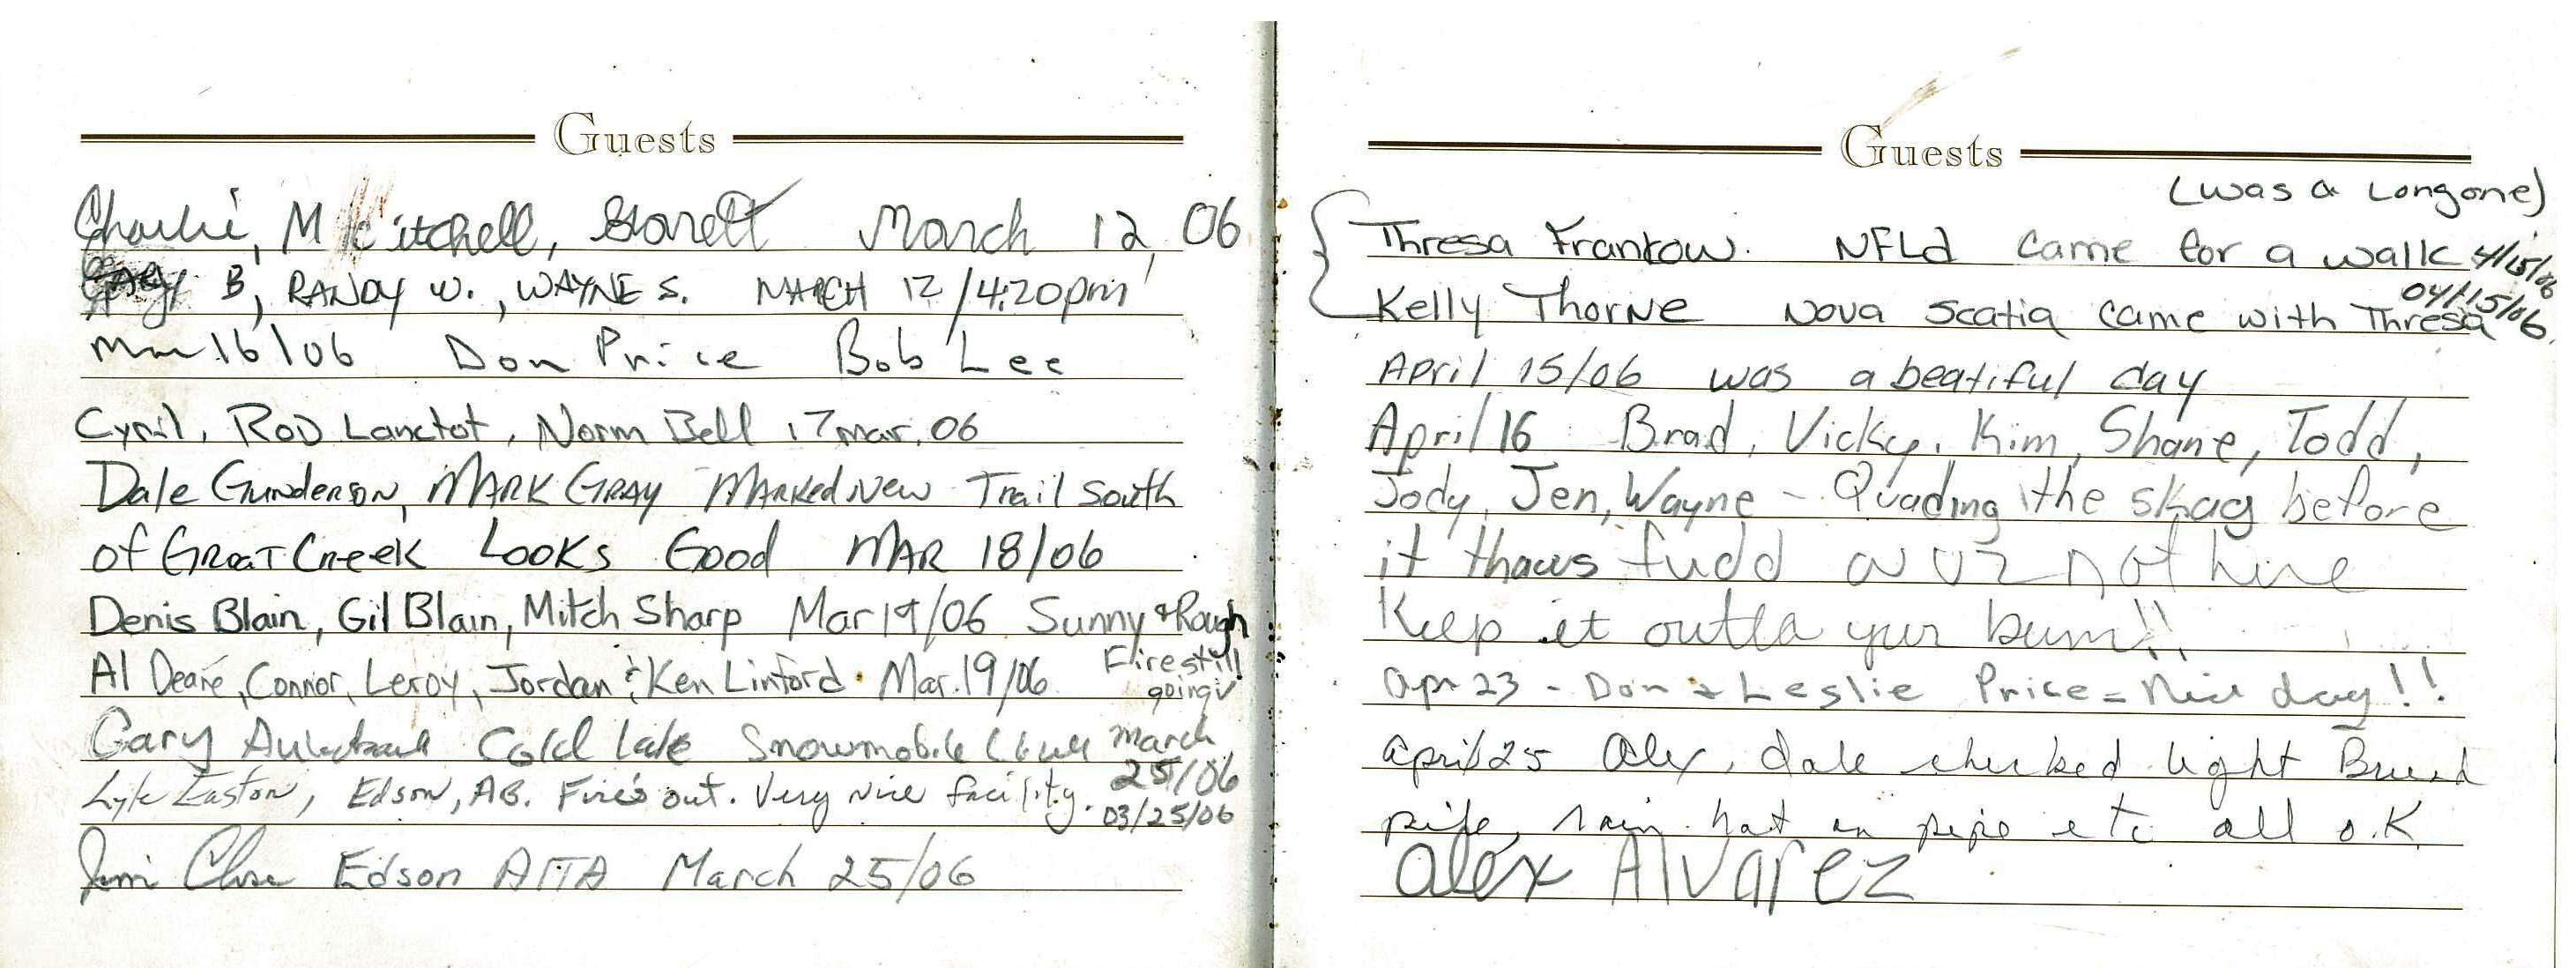 Guests
Charlie, Mitchell, Garett March 12, 06
B, RANDY W., WAYNE S. MARCH 12/4:20pm
Mar 16/06 Don Price Bob Lee
Cyril, ROD Lanctot, Norm Bell 17 mar. 06
Dale Gunderson, MARK GRAY MARKed New Trail South
of GROAT CReek LOOKS Good MAR 18/06
Denis Blain, Gil Blain, Mitch Sharp Mar 19/06 Sunny & Rough
Al Deane, Connor, Leroy, Jordan & Ken Linford. Mar. 19/06 Fire still going
Gary Cold Lake Snowmobile march 25/06
Lyle Easton, Edson, AB. Fire's out. Very nice facility. 03/25/06
Jim Edson March 25/06
Guests
(was a Long one)
Thresa Frankow. NFLd came for a walk 4/15/06
Kelly Thorne Nova Scatia came with Thresa 04/15/06.
April 15/06 was a beatiful day
April 16 Brad, Vicky, Kim, Shane, Todd,
Jody, Jen, Wayne - Quading the skag before
it thaws fudd wuz not hire
Keep it outta yur bum!!
Apr 23 - Don & Leslie Price = Nice day!!
april 25 Alex, dale checked light
pipe, rain hat on pipe etc all o.K
alex Alvarez